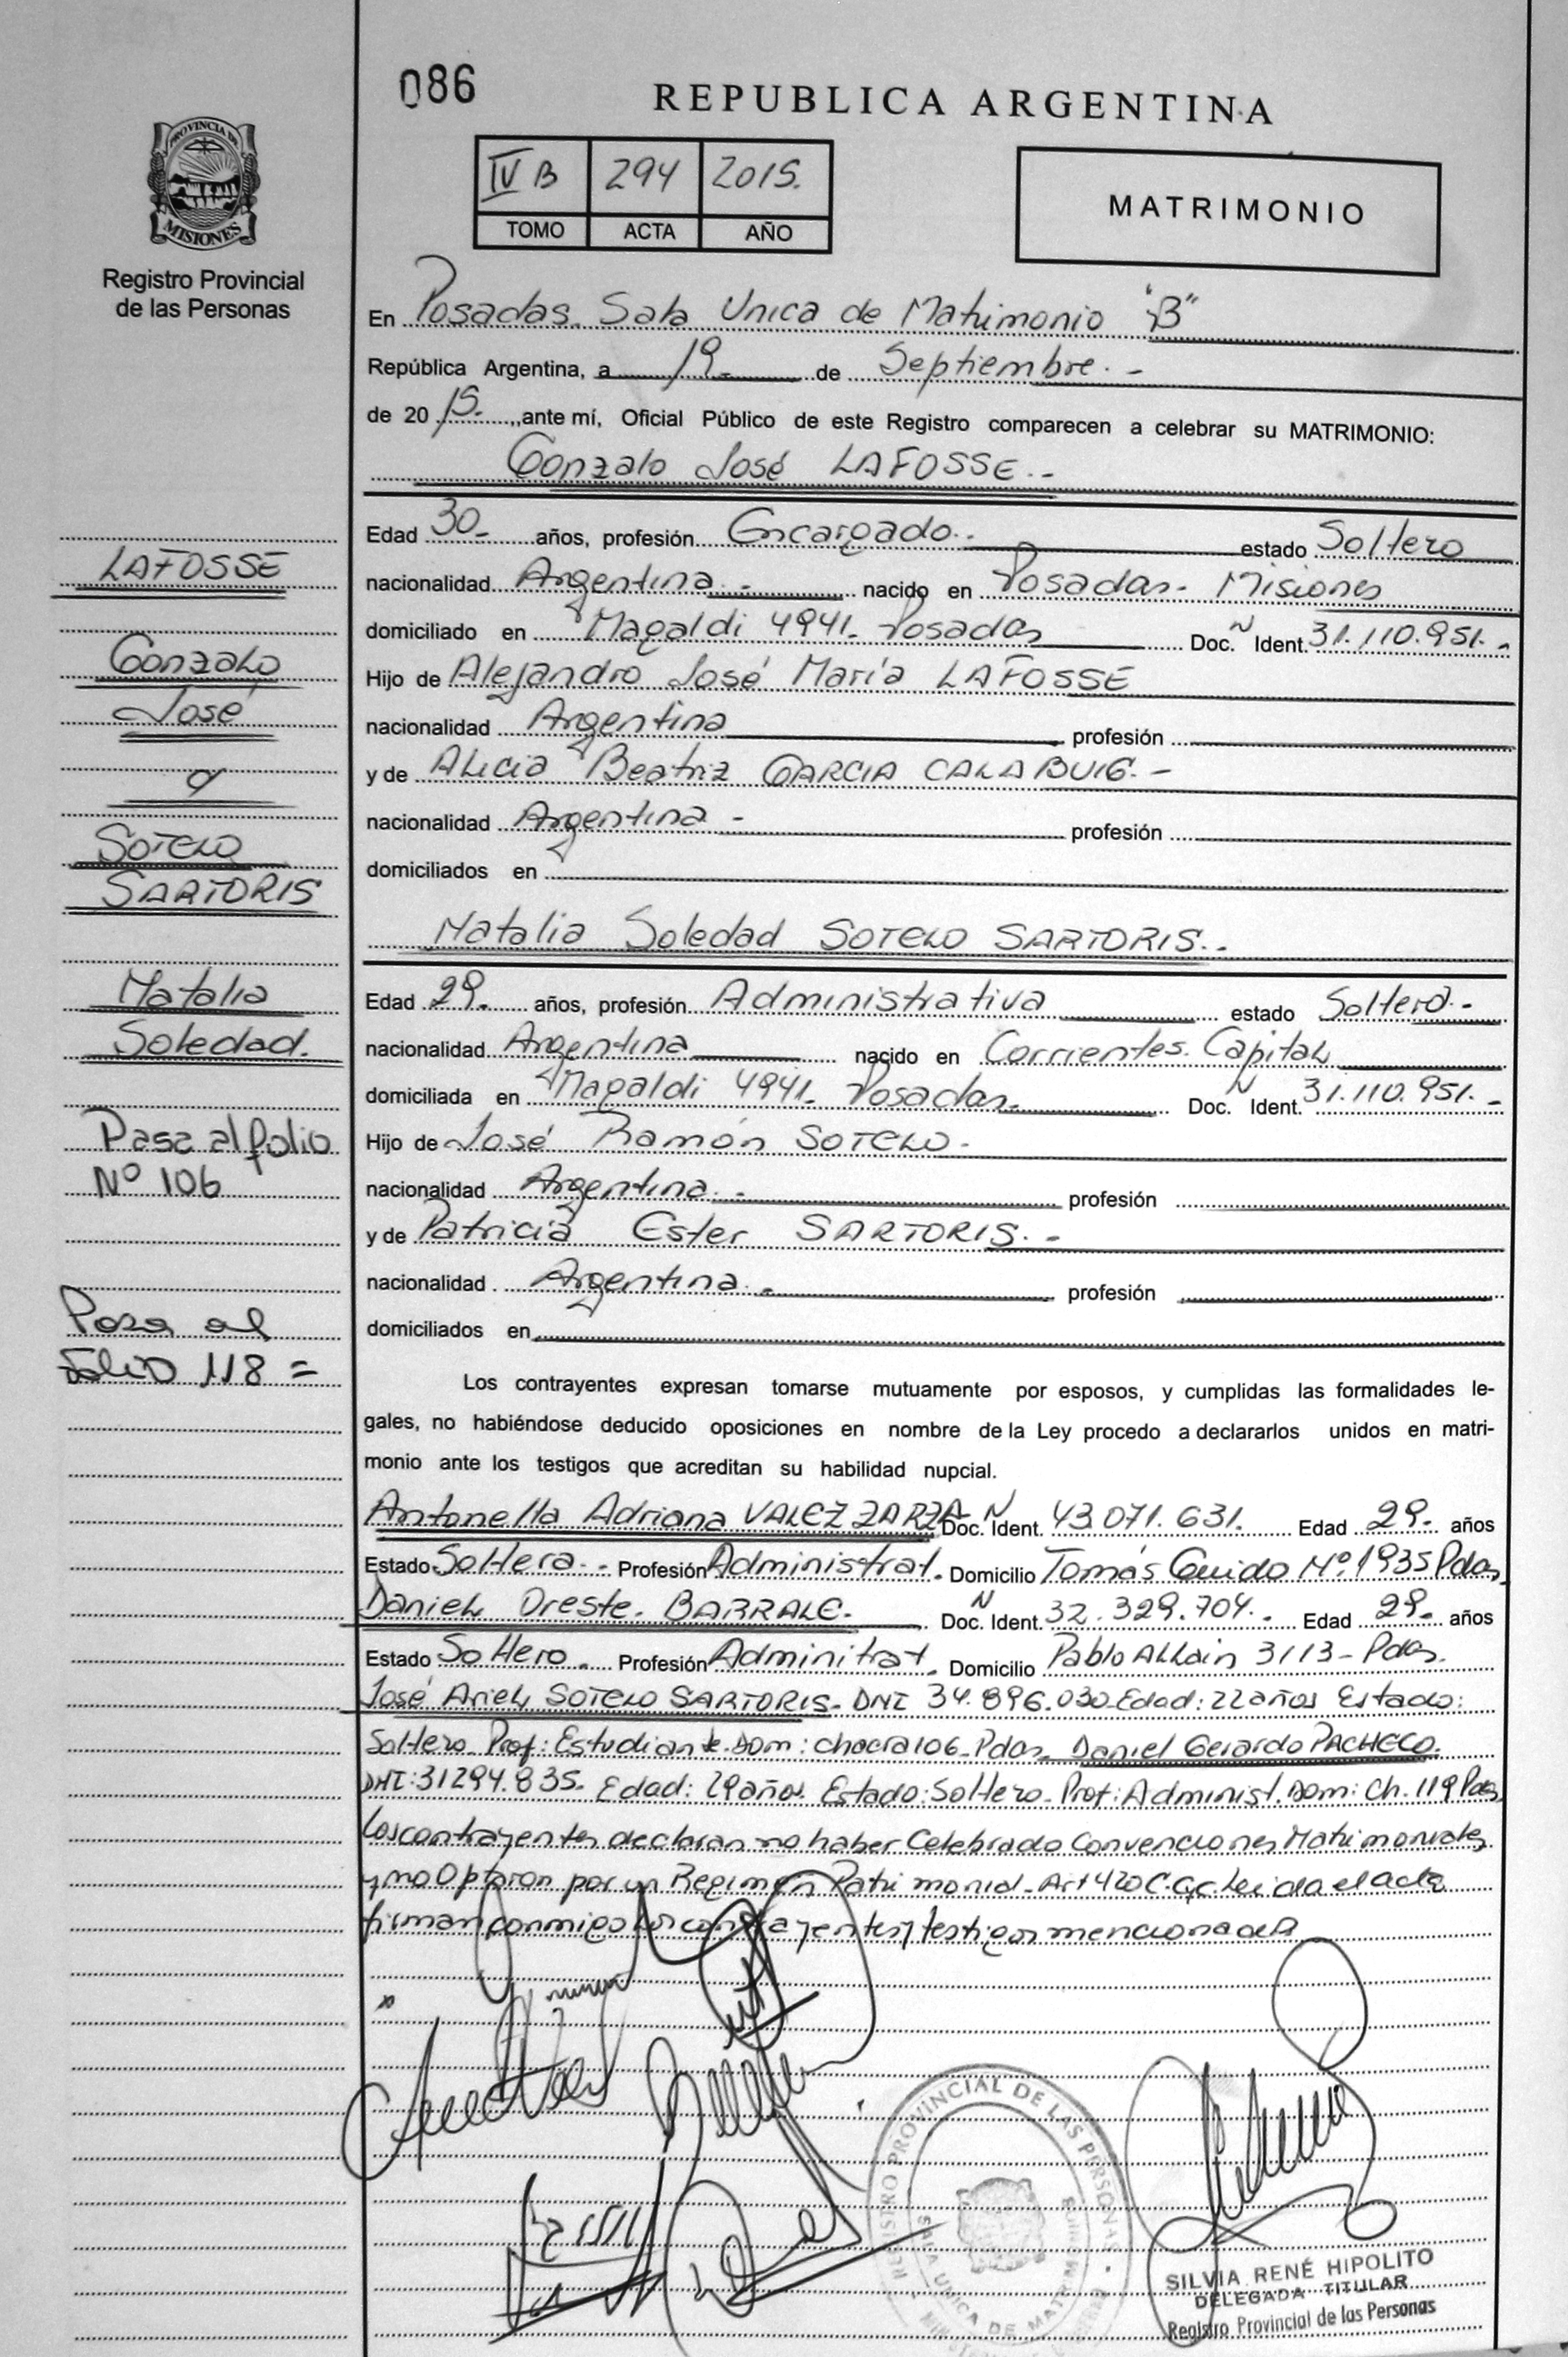 086
REPUBLICA ARGENTINA
PROVINCIA DE
MISIONES
Registro Provincial
de las Personas
IV B 294 2015.
TOMO ACTA AÑO
MATRIMONIO
En Posadas. Sala Unica de Matrimonio "B"
República Argentina, a 19 de Septiembre. -
de 20 15. ,ante mí, Oficial Público de este Registro comparecen a celebrar su MATRIMONIO:
Gonzalo José LAFOSSE. -
Edad 30 - años, profesión Encargado. - estado Soltero
nacionalidad Argentina. - nacido en Posadas - Misiones
domiciliado en Magaldi 4941. Posadas Doc. N Ident. 31.110.951. -
Hijo de Alejandro José María LAFOSSE
nacionalidad Argentina profesión
y de Alicia Beatriz GARCIA CALABUIG. -
nacionalidad Argentina - profesión
domiciliados en
Natalia Soledad SOTELO SARTORIS. -
Edad 29. años, profesión Administrativa estado Soltera -
nacionalidad Argentina nacido en Corrientes. Capital
domiciliada en Magaldi 4941. Posadas. Doc. N Ident. 31.110.951. -
Hijo de José Ramón SOTELO -
nacionalidad Argentina. - profesión
y de Patricia Ester SARTORIS. -
nacionalidad Argentina. - profesión
domiciliados en
LAFOSSE
Gonzalo
José
y
SOTELO
SARTORIS
Natalia
Soledad.
Pasa al folio
Nº 106
Pasa al
folio 118 =
Los contrayentes expresan tomarse mutuamente por esposos, y cumplidas las formalidades le-
gales, no habiéndose deducido oposiciones en nombre de la Ley procedo a declararlos unidos en matri-
monio ante los testigos que acreditan su habilidad nupcial.
Antonella Adriana VALEZ ZARZA Doc. N Ident. 43.071.631. Edad 29. años
Estado Soltera. - Profesión Administrat. Domicilio Tomás Guido Nº 1935 Pdas.
Daniel Oreste. BARRALE. Doc. N Ident. 32.329.704. Edad 29. años
Estado Soltero. Profesión Adminitrat. Domicilio Pablo Allain 3113 - Pdas.
José Ariel SOTELO SARTORIS - DNI 34.896.030 - Edad: 22 años Estado:
Soltero. Prof: Estudiante. Dom: chacra 106 - Pdas. Daniel Gerardo PACHECO.
DNI: 31294.835. Edad: 29 años. Estado: Soltero. Prof: Administ. Dom: Ch. 119 Pdas
Los contrayentes declaran no haber Celebrado Convenciones Matrimoniales
y no Optaron por un Regimen Patrimonial - Art 420 C.C.yc. Leida el acta
firman conmigo los contrayentes y testigos mencionados
REGISTRO PROVINCIAL DE LAS PERSONAS
SALA UNICA DE MATRIMONIO
SILVIA RENÉ HIPOLITO
DELEGADA TITULAR
Registro Provincial de las Personas